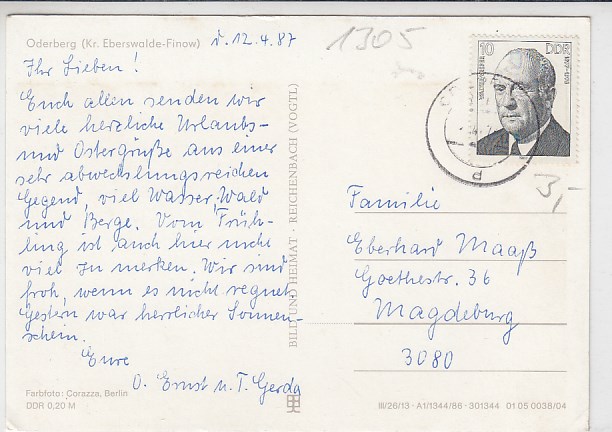 Oderberg (Kr. Eberswalde-Finow) d. 12.4.87
Ihr Lieben!
Euch allen senden wir
viele herzliche Urlaubs-
und Ostergrüße aus einer
sehr abwechslungsreichen
Gegend, viel Wasser, Wald
und Berge. Vom Früh-
ling ist auch hier nicht
viel zu merken. Wir sind
froh, wenn es nicht regnet
Gestern war herrlicher Sonnen-
schein.
Eure
O. Ernst u. T. Gerda
Farbfoto: Corazza, Berlin
DDR 0,20 M
BILD UND HEIMAT · REICHENBACH (VOGTL)
1305
10 DDR
3,-
Familie
Eberhard Maaß
Goethestr. 36
Magdeburg
3080
III/26/13 · A1/1344/86 · 301344 01 05 0038/04